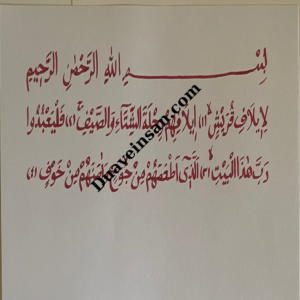 بِسْمِ اللهِ الرَّحْمٰنِ الرَّحِيْمِ
لِاِيلَافِ قُرَيْشٍ (١) اِيلَافِهِمْ رِحْلَةَ الشِّتَآءِ وَالصَّيْفِ (٢) فَلْيَعْبُدُوا
رَبَّ هٰذَا الْبَيْتِ (٣) الَّذِى اَطْعَمَهُمْ مِنْ جُوْعٍ وَاٰمَنَهُمْ مِنْ خَوْفٍ (٤)
Duaveinsan.com